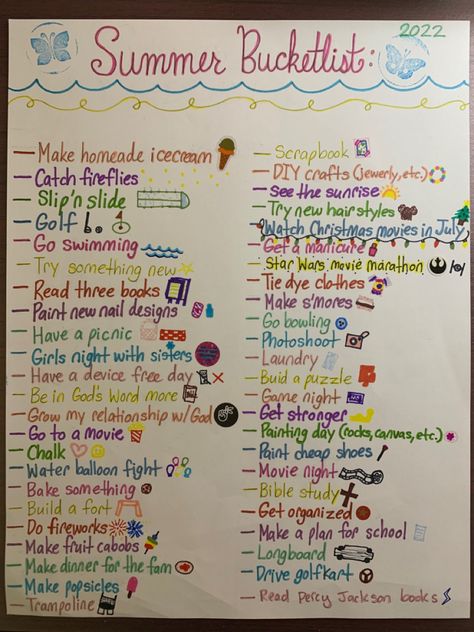 2022
Summer Bucketlist:
Make homeade icecream
Catch fireflies
Slip'n slide
Golf
Go swimming
Try something new
Read three books
Paint new nail designs
Have a picnic
Girls night with sisters
Have a device free day
Be in God's Word more
Grow my relationship w/God
Go to a movie
Chalk
Water balloon fight
Bake something
Build a fort
Do fireworks
Make fruit cabobs
Make dinner for the fam
Make popsicles
Trampoline
Scrapbook
DIY crafts (jewerly, etc.)
See the sunrise
Try new hair styles
Watch Christmas movies in July
Get a manicure
Star Wars movie marathon
Tie dye clothes
Make s'mores
Go bowling
Photoshoot
Laundry
Buid a puzzle
Game night
Get stronger
Painting day (rocks, canvas, etc.)
Paint cheap shoes
Movie night
Bible study
Get organized
Make a plan for school
Longboard
Drive golfkart
Read Percy Jackson books